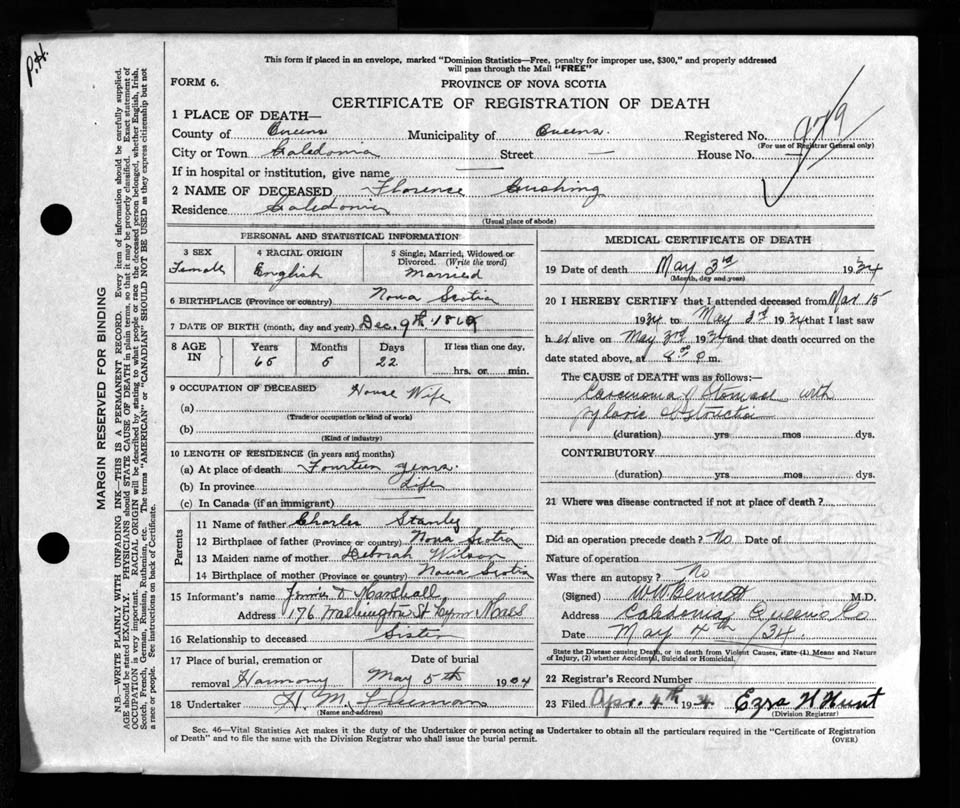 P.H.
This form if placed in an envelope, marked "Dominion Statistics—Free, penalty for improper use, $300," and properly addressed
will pass through the Mail "FREE"
FORM 6.
PROVINCE OF NOVA SCOTIA
CERTIFICATE OF REGISTRATION OF DEATH
1 PLACE OF DEATH—
County of Queens Municipality of Queens. Registered No. 979
(For use of Registrar General only)
City or Town Caledonia Street — House No.
If in hospital or institution, give name —
2 NAME OF DECEASED Florence Cushing
Residence Caledonia
(Usual place of abode)
PERSONAL AND STATISTICAL INFORMATION
3 SEX
Female
4 RACIAL ORIGIN
English
5 Single, Married, Widowed or
Divorced. (Write the word)
Married
6 BIRTHPLACE (Province or country) Nova Scotia
7 DATE OF BIRTH (month, day and year) Dec. 9th 1869
8 AGE IN
Years 65
Months 5
Days 22
If less than one day,
hrs. or min.
9 OCCUPATION OF DECEASED House Wife
(a)
(Trade or occupation or kind of work)
(b)
(Kind of industry)
10 LENGTH OF RESIDENCE (in years and months)
(a) At place of death Fourteen years.
(b) In province Life
(c) In Canada (if an immigrant)
Parents
11 Name of father Charles Stanley
12 Birthplace of father (Province or country) Nova Scotia
13 Maiden name of mother Deborah Wilson
14 Birthplace of mother (Province or country) Nova Scotia
15 Informant's name Marshall
Address 176 St Lynn Mass
16 Relationship to deceased Sister
17 Place of burial, cremation or
removal Harmony
Date of burial
May 5th 1934
18 Undertaker H. M. Freeman
(Name and address)
MEDICAL CERTIFICATE OF DEATH
19 Date of death May 3rd 1934
(Month, day and year)
20 I HEREBY CERTIFY that I attended deceased from Mar 15
1934 to May 3rd 1934 that I last saw
her alive on May 3rd 1934 and that death occurred on the
date stated above, at 8 00 P. m.
The CAUSE OF DEATH was as follows:—
Carcinoma of Stomach with
pyloric obstruction
(duration) yrs mos dys.
CONTRIBUTORY
(duration) yrs mos dys.
21 Where was disease contracted if not at place of death?
Did an operation precede death? No Date of
Nature of operation
Was there an autopsy? No
(Signed) W W Bennett M.D.
Address Caledonia Queens Co
Date May 4th /34.
State the Disease causing Death, or in death from Violent Causes, state (1) Means and Nature
of Injury, (2) whether Accidental, Suicidal or Homicidal.
22 Registrar's Record Number
23 Filed Apr. 4th 1934 Ezra H Hunt
(Division Registrar)
Sec. 46—Vital Statistics Act makes it the duty of the Undertaker or person acting as Undertaker to obtain all the particulars required in the "Certificate of Registration
of Death" and to file the same with the Division Registrar who shall issue the burial permit.
(OVER)
MARGIN RESERVED FOR BINDING
N.B.—WRITE PLAINLY WITH UNFADING INK—THIS IS A PERMANENT RECORD. Every item of information should be carefully supplied.
AGE should be stated EXACTLY. PHYSICIANS should STATE CAUSE OF DEATH in plain terms, so that it may be properly classified. Exact statement of
OCCUPATION is very important. RACIAL ORIGIN will be described by stating to what people or race the deceased person belonged, whether English, Irish,
Scotch, French, German, Russian, Ruthenian, etc. The terms "AMERICAN" or "CANADIAN" SHOULD NOT BE USED as they express citizenship but not
a race or people. See instructions on back of Certificate.